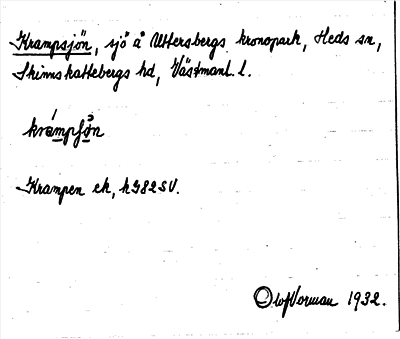 Krampsjön, sjö å Uttersbergs kronopark, Heds sn,
Skinnskattebergs hd, Västmanl. l.
Krampen ek, k982SV.
Olof Vorman 1932.